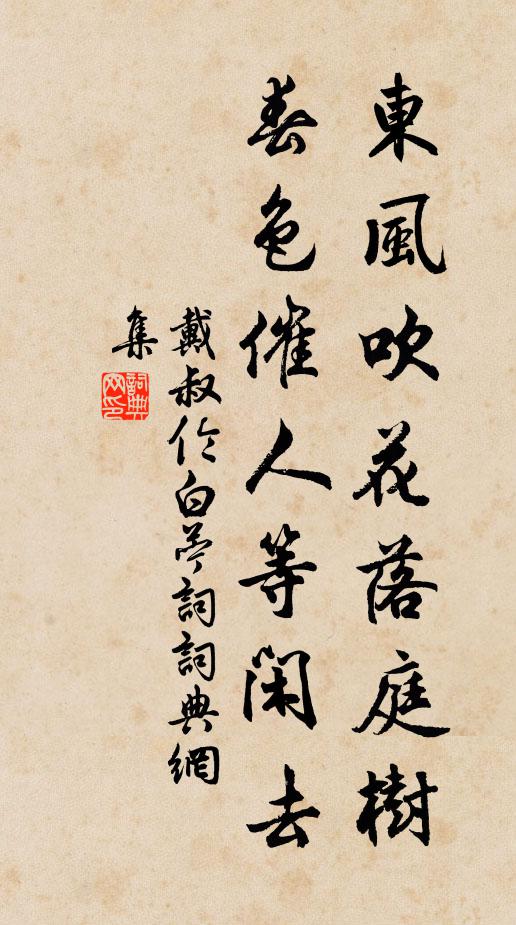 東風吹花落庭樹
春色催人等閑去
戴叔伦白苎詞詞典網
集
詞典
网印